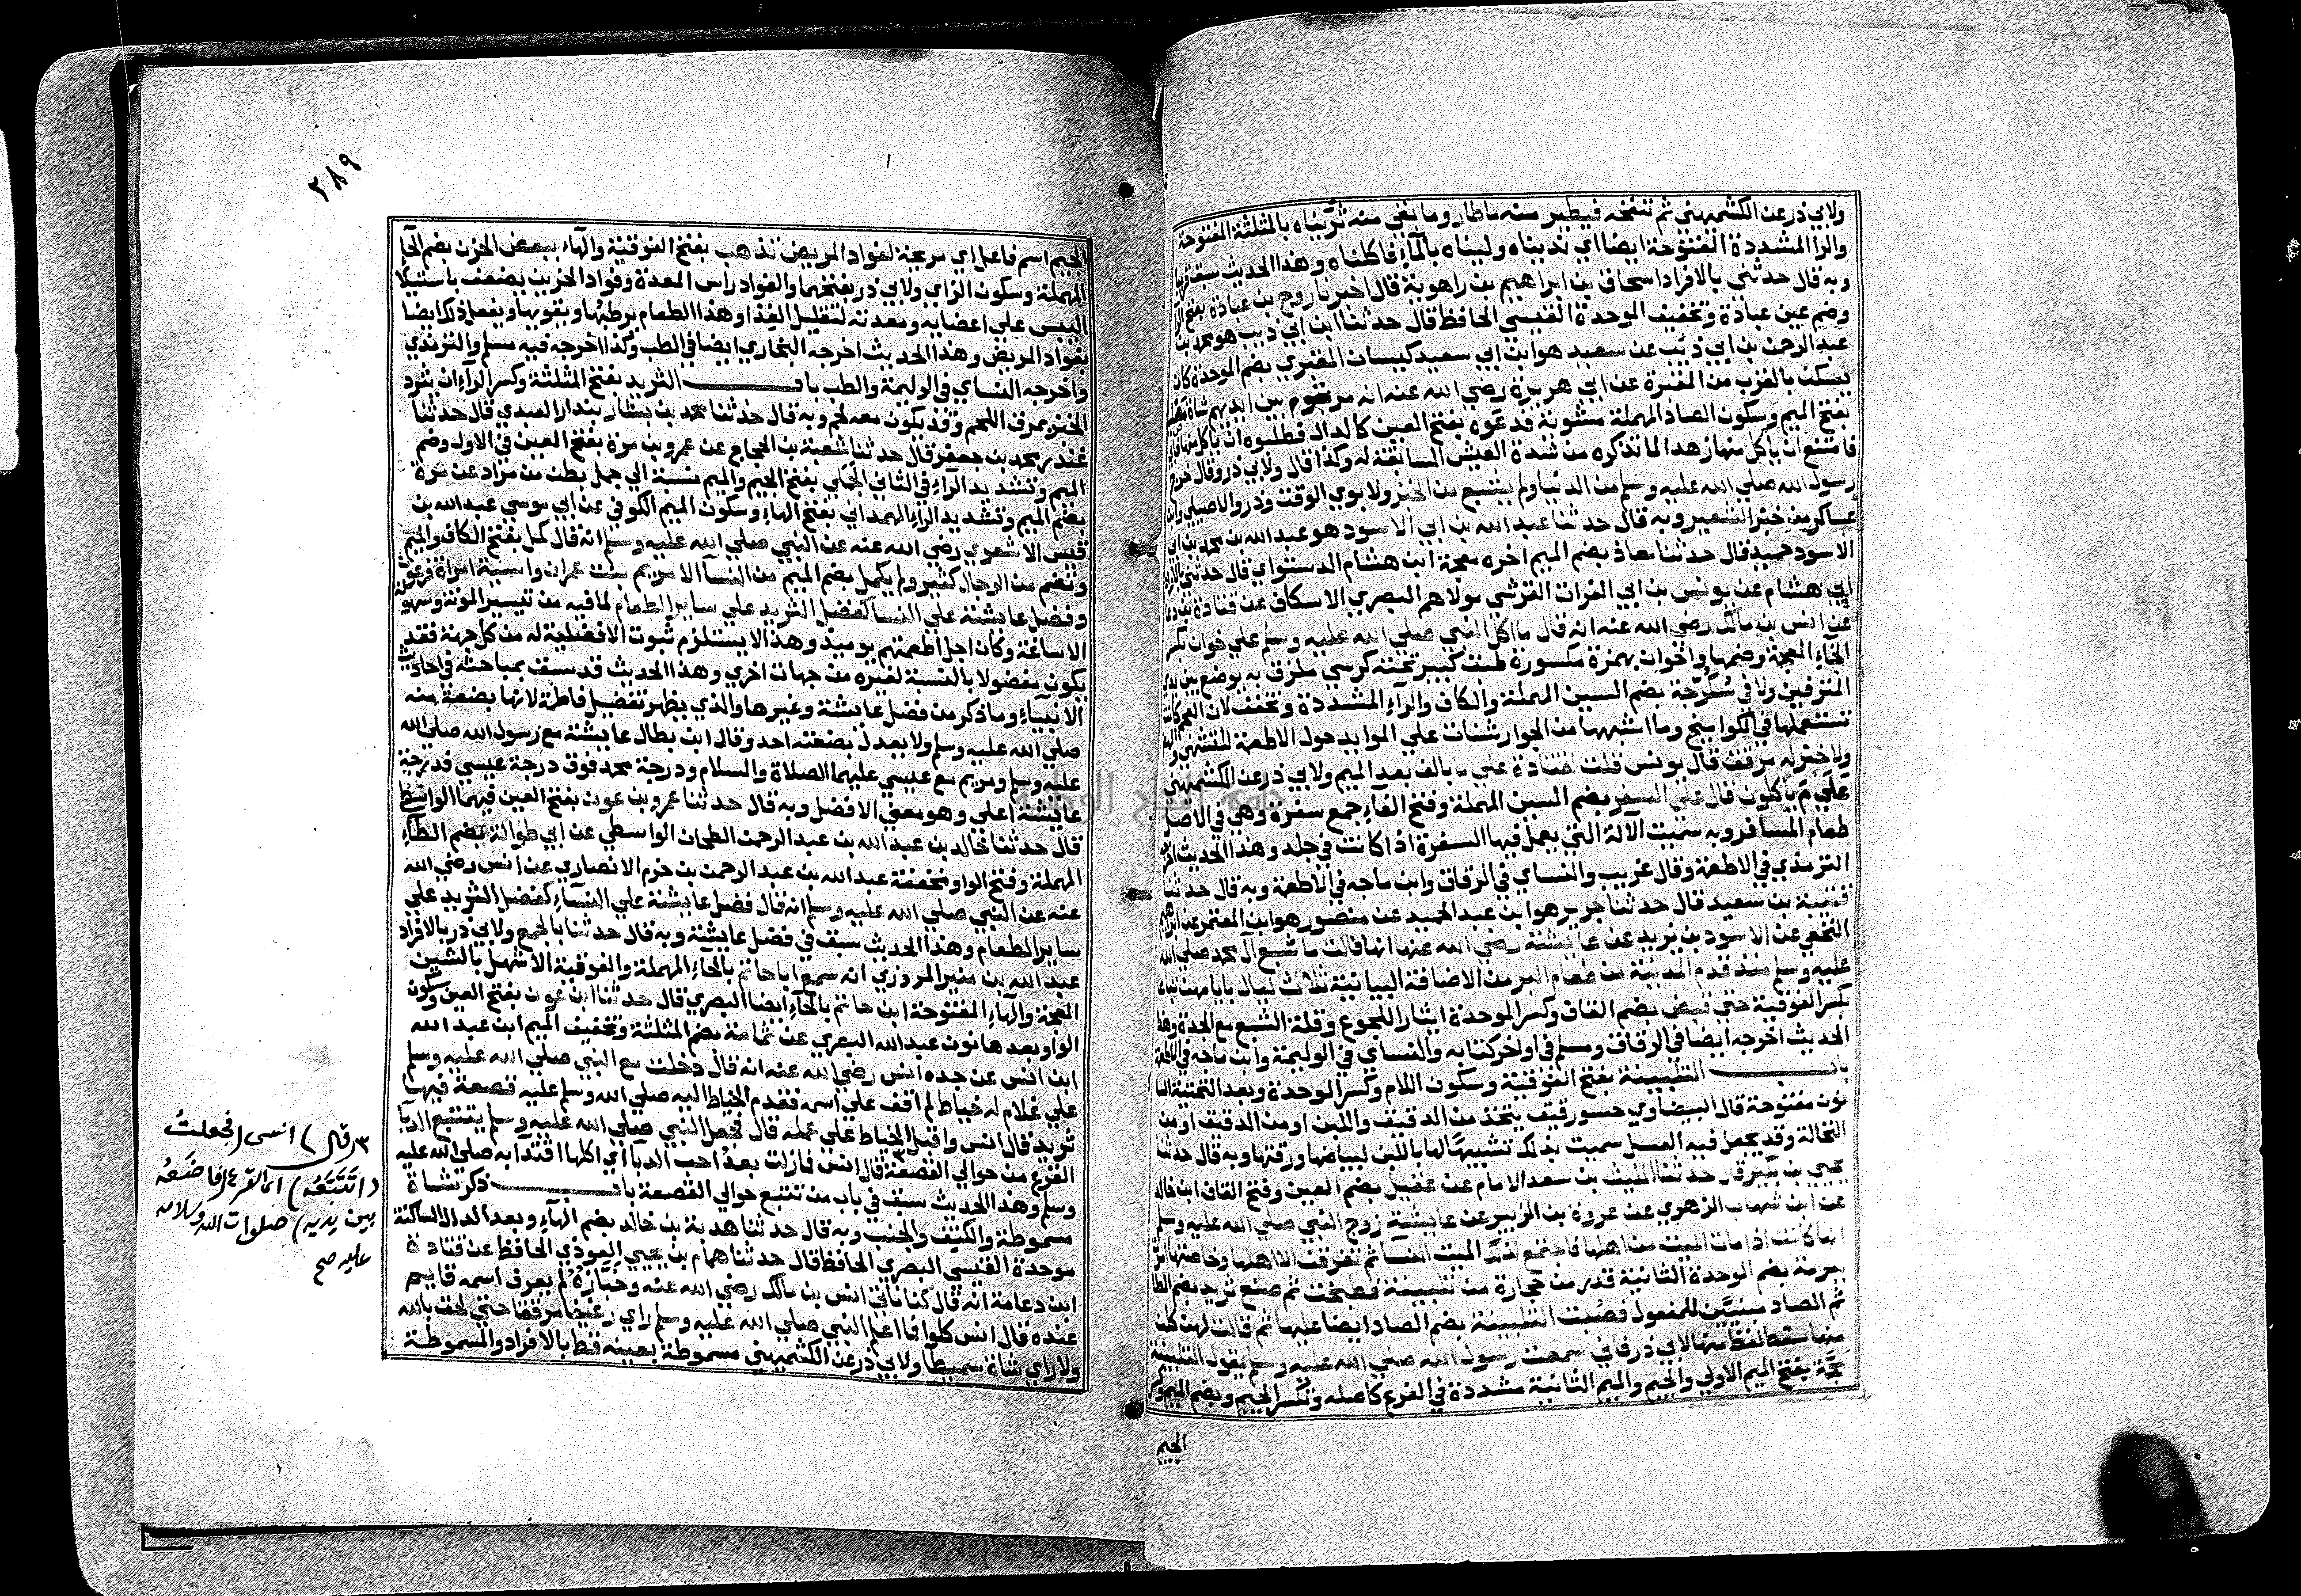 ولابي ذر عن الكشميهني ثم ننفخه فيطير منه ما طار وما بقي منه ثريناه بالمثلثة المفتوحة
والرا المشددة المفتوحة ايضا اي نديناه ولبيناه بالمآء فاكلناه وهذا الحديث سبق قريبا
وبه قال حدثني بالافراد اسحاق بن ابراهيم بن راهوية قال اخبرنا روح بن عبادة بفتح الرا
وضم عين عبادة وتخفيف الموحدة القيسي الحافظ قال حدثنا ابن ابي ذيب هو محمد بن
عبد الرحمن بن ابي ذئب عن سعيد هو ابن ابي سعيد كيسان المقبري بضم الموحدة كان
يسكن بالقرب من المقبرة عن ابي هريرة رضي الله عنه انه مر بقوم بين ايديهم شاة مصلية
بفتح الميم وسكون الصاد المهملة مشوية فدعوه بفتح العين كالدال فطلبوه ان ياكل منها فابي
فامتنع ان ياكل منها زهدا لما تذكره من شدة العيش السابقة له وكذا قال ولابي ذر وقال خرج
رسول الله صلي الله عليه وسلم من الدنيا ولم يشبع من الخبز ولابوي الوقت وذر والاصيلي وابن
عساكر من خبز الشعير وبه قال حدثنا عبد الله بن ابي الاسود هو عبد الله بن محمد بن ابي
الاسود حميد قال حدثنا معاذ بضم الميم اخره معجمة ابن هشام الدستواي قال حدثني بالافراد
ابي هشام عن يونس بن ابي الفرات القرشي مولاهم البصري الاسكاف عن قتادة بن دعامة
عن انس بن مالك رضي الله عنه انه قال ما اكل النبي صلي الله عليه وسلم علي خوان بكسر
الخاء المعجمة وضمها واخوان بهمزة مكسورة طبق كبير تحته كرسي ملزق به يوضع بين يدي
المترفين ولا في سكرجة بضم السين المهملة والكاف والراء المشددة وتخفف لان العجم كانت
تستعملها في الكواميخ وما اشبهها من الجوارشنات علي الموايد حول الاطعمة للتشهي والهضم
ولا خبز له مرقق قال يونس قلت لقتادة علي ما بالف بعد الميم ولابي ذر عن الكشميهني
علي م ياكلون قال علي السفر بضم السين المهملة وفتح الفاء جمع سفرة وهي في الاصل
طعام المسافر وبه سميت الآلة التي يعمل فيها السفرة اذا كانت في جلد وهذا الحديث اخرجه
الترمذي في الاطعمة وقال غريب والنساي في الرقاق وابن ماجه في الاطعمة وبه قال حدثنا
قتيبة بن سعيد قال حدثنا جرير هو ابن عبد الحميد عن منصور هو ابن المعتمر عن ابراهيم
النخعي عن الاسود بن يزيد عن عايشة رضي الله عنها انها قالت ما شبع آل محمد صلي الله
عليه وسلم منذ قدم المدينة من طعام البر من الاضافة البيانية ثلاث ليال بايامهن تباعا
بكسر الفوقية حتي قبض بضم القاف وكسر الموحدة ايثارا للجوع وقلة الشبع مع الجدة وهذا
الحديث اخرجه ايضا في الرقاق ومسلم في اواخر كتابه والنساي في الوليمة وابن ماجه في الاطعمة
باب التلبينة بفتح الفوقية وسكون اللام وكسر الموحدة وبعد التحتية الساكنة
نون مفتوحة قال البيضاوي حسو رقيق يتخذ من الدقيق واللبن او من الدقيق او من
النخالة وقد يجعل فيه العسل سميت بذلك تشبيها لها باللبن لبياضها ورقتها وبه قال حدثنا
يحيي بن بكير قال حدثنا الليث بن سعد الامام عن عقيل بضم العين وفتح القاف ابن خالد
عن ابن شهاب الزهري عن عروة بن الزبير عن عايشة زوج النبي صلي الله عليه وسلم
انها كانت اذا مات الميت من اهلها فاجتمع لذلك الميت النسا ثم تفرقن الا اهلها وخاصتها امرت
ببرمة بضم الموحدة الثانية قدر من حجارة من تلبينة فطبخت ثم صنع ثريد بضم الطا
ثم الصاد مبنيين للمفعول فصبت التلبينة بضم الصاد ايضا عليها ثم قالت لهن كلن
منها سقط لفظ منها لابي ذر فاني سمعت رسول الله صلي الله عليه وسلم يقول التلبينة
مجمة بفتح الميم الاولي والجيم والميم الثانية مشددة في الفرع كاصله وتكسر الجيم وبضم الميم وكسر
الجيم
٢٨٩
الجيم اسم فاعل اي مريحة لفواد المريض تذهب بفتح الفوقية والهاء ببعض الحزن بضم الحا
المهملة وسكون الزاي ولابي ذر بفتحهما والفواد راس المعدة وفواد الحزين يضعف باستيلا
اليبس علي اعضايه ومعدته لتقليل الغذا وهذا الطعام يرطبها ويقويها ويفعل ذلك ايضا
بفواد المريض وهذا الحديث اخرجه البخاري ايضا في الطب وكذا اخرجه فيه مسلم والترمذي
واخرجه النساي في الوليمة والطب باب الثريد بفتح المثلثة وكسر الراء ان يثرد
الخبز بمرق اللحم وقد يكون معه لحم وبه قال حدثنا محمد بن بشار بندار العبدي قال حدثنا
غندر محمد بن جعفر قال حدثنا شعبة بن الحجاج عن عمرو بن مرة بفتح العين في الاول وضم
الميم وتشديد الراء في الثاني الجملي بفتح الجيم والميم نسبة الي جمل بطن من مراد عن مرة
بضم الميم وتشديد الراء الهمداني بفتح الهاء وسكون الميم الكوفي عن ابي موسي عبد الله بن
قيس الاشعري رضي الله عنه عن النبي صلي الله عليه وسلم انه قال كمل بفتح الكاف والميم
وتضم من الرجال كثير ولم يكمل بضم الميم من النسآ الا مريم بنت عمران واسية امراة فرعون
وفضل عايشة علي النسا كفضل الثريد علي ساير الطعام لما فيه من تيسير المونة وسهولة
الاساغة وكان اجل اطعمتهم يوميذ وهذا لا يستلزم ثبوت الافضلية له من كل جهة فقد
يكون مفضولا بالنسبة لغيره من جهات اخري وهذا الحديث قد سبق بمباحثه في احاديث
الانبياء وما ذكر من فضل عايشة وغيرها والذي يظهر تفضيل فاطمة لانها بضعة منه
صلي الله عليه وسلم ولا يعدل بضعته احد وقال ابن بطال عايشة مع رسول الله صلي الله
عليه وسلم ومريم مع عيسي عليهما الصلاة والسلام ودرجة محمد فوق درجة عيسي فدرجة
عايشة اعلي وهو معني الافضل وبه قال حدثنا عمرو بن عون بفتح العين فيهما الواسطي
قال حدثنا خالد بن عبد الله بن عبد الرحمن الطحان الواسطي عن ابي طوالة بضم الطآء
المهملة وفتح الواو مخففة عبد الله بن عبد الرحمن بن حزم الانصاري عن انس رضي الله
عنه عن النبي صلي الله عليه وسلم انه قال فضل عايشة علي النسآء كفضل الثريد علي
ساير الطعام وهذا الحديث سبق في فضل عايشة وبه قال حدثنا بالجمع ولابي ذر بالافراد
عبد الله بن منير المروزي انه سمع ابا حاتم بالحاء المهملة والفوقية الاشهل بالشين
المعجمة والهاء المفتوحة ابن حاتم بالحاء ايضا البصري قال حدثنا ابن عون بفتح العين وسكون
الواو بعدها نون عبد الله البصري عن ثمامة بضم المثلثة وتخفيف الميم ابن عبد الله
ابن انس عن جده انس رضي الله عنه انه قال دخلت مع النبي صلي الله عليه وسلم
علي غلام له خياط لم اقف علي اسمه فقدم الخياط اليه صلي الله وسلم عليه قصعة فيها
ثريد قال انس واقبل الخياط علي عمله قال فجعل النبي صلي الله عليه وسلم يتتبع الدبا
القرع من حوالي القصعة قال انس فما زلت بعد احب الدبا اي اكلها اقتدآ به صلي الله عليه
وسلم وهذا الحديث سبق في باب من تتبع حوالي القصعة باب ذكر شاة
مسموطة والكتف والجنب وبه قال حدثنا هدبة بن خالد بضم الهاء وبعد الدال الساكنة
موحدة القيسي البصري الحافظ قال حدثنا همام بن يحيي العوذي الحافظ عن قتادة
ابن دعامة انه قال كنا ناتي انس بن مالك رضي الله عنه وخبازه لم يعرف اسمه قايم
عنده قال انس كلوا فما اعلم النبي صلي الله عليه وسلم راي رغيفا مرققا حتي لحق بالله
ولا راي شاة سميطا ولابي ذر عن الكشميهني مسموطة بعينه قط بالافراد والمسموطة
٣ (قال) انس (فجعلت
(اتتبعه) اي القرع (فاضعه
بين يديه) صلوات الله وسلامه
عليه صح